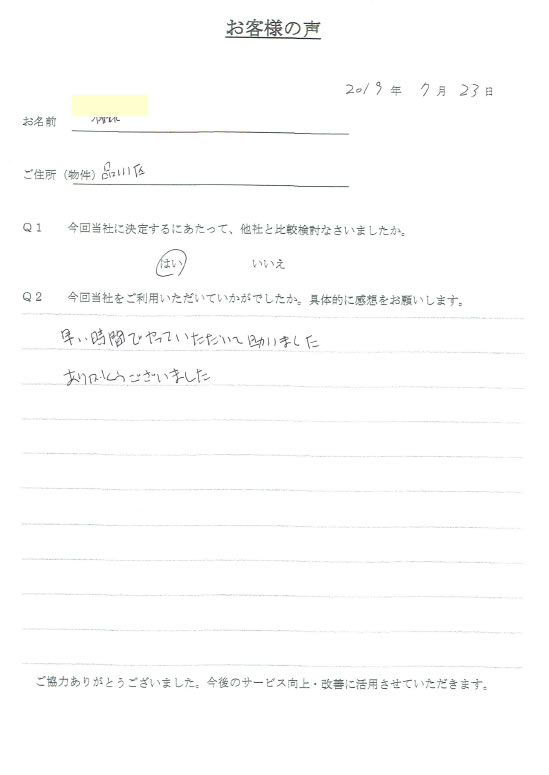 お客様の声
2019年 7月 23日
お名前
ご住所（物件）品川区
Q1 今回当社に決定するにあたって、他社と比較検討なさいましたか。
はい いいえ
Q2 今回当社をご利用いただいていかがでしたか。具体的に感想をお願いします。
早い時間でやっていただいて助いました
ありがとうございました
ご協力ありがとうございました。今後のサービス向上・改善に活用させていただきます。